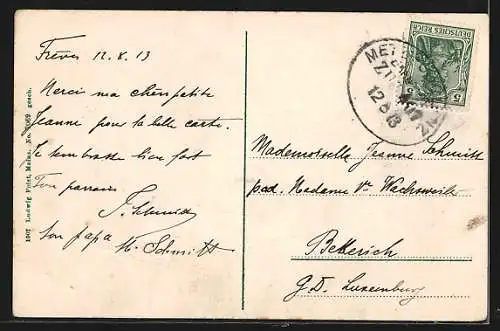 Trèves 12.8.13
Merci ma chère petite
Jeanne pour la belle carte.
Je t'embrasse bien fort
Ton parrain
J. Schmidt
ton papa
N. Schmitt
1907 Ludwig Feist, Mainz. No. gesch.
DEUTSCHES REICH
5 5
MET
ZUG
12 8 13
Mademoiselle Jeanne Schmitt
pad. Madame Ve Wachsweiler
Betterich
G.D. Luxemburg